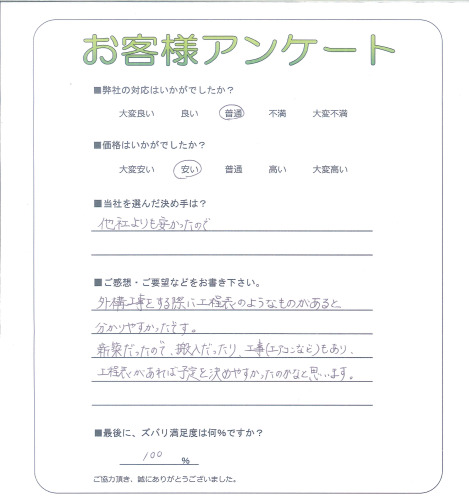 お客様アンケート
■弊社の対応はいかがでしたか？
大変良い 良い 普通 不満 大変不満
■価格はいかがでしたか？
大変安い 安い 普通 高い 大変高い
■当社を選んだ決め手は？
他社よりも安かったので
■ご感想・ご要望などをお書き下さい。
外構工事をする際に工程表のようなものがあると
分かりやすかったです。
新築だったので、搬入だったり、工事(エアコンなど)もあり、
工程表があれば予定を決めやすかったのかなと思います。
■最後に、ズバリ満足度は何%ですか？
100 %
ご協力頂き、誠にありがとうございました。